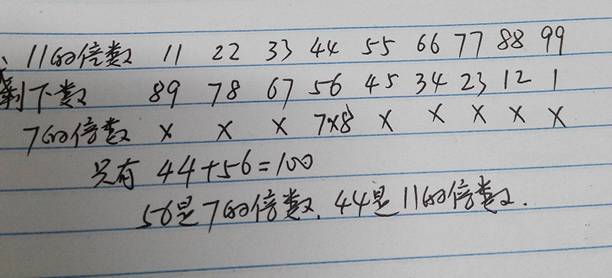 、11的倍数 11 22 33 44 55 66 77 88 99
剩下数 89 78 67 56 45 34 23 12 1
7的倍数 × × × 7×8 × × × × ×
只有 44+56=100
56是7的倍数, 44是11的倍数.